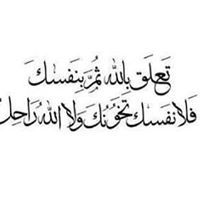 تَعلَق بالله ثُمَّ بِنَفسكَ
فَلا نَفسكَ تَخُونكَ ولا اللهُ رَاحِل